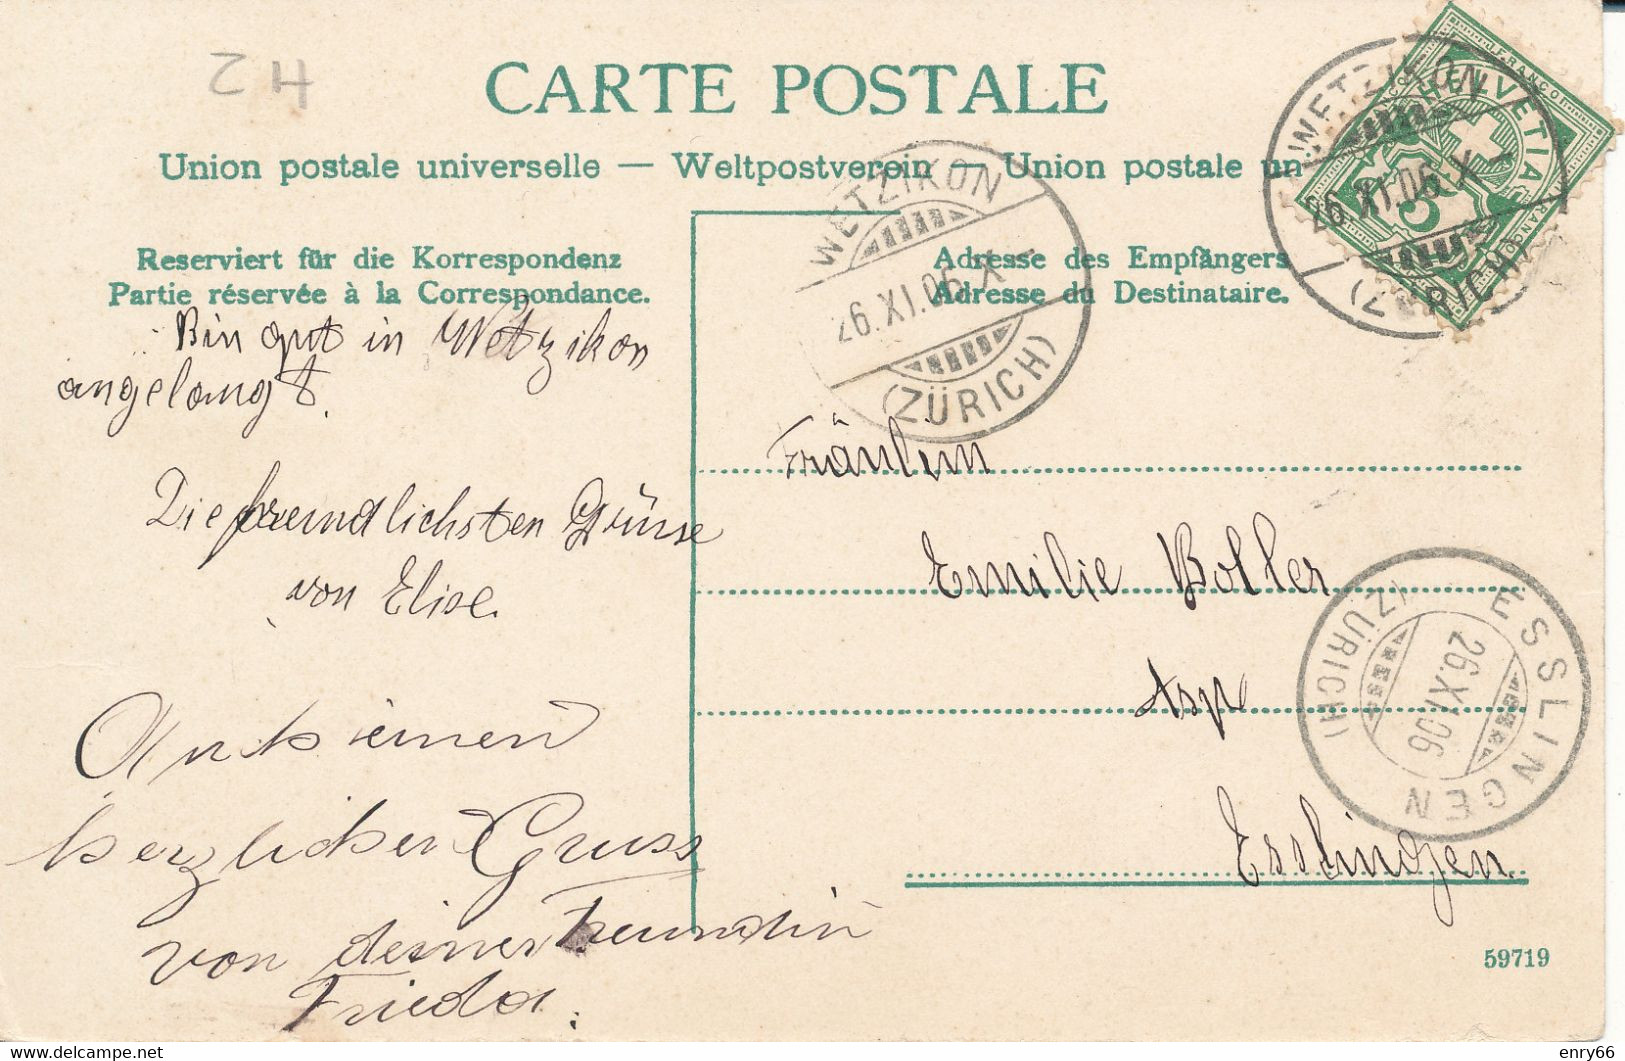 ZH
CARTE POSTALE
Union postale universelle — Weltpostverein — Union postale un
Reserviert für die Korrespondenz
Partie réservée à la Correspondance.
Adresse des Empfängers
Adresse du Destinataire.
WETZIKON
26.XI.06.X
(ZÜRICH)
WETZIKON
26.XI.06.X
(ZÜRICH)
HELVETIA
FRANCO
FRANCO
5
Bin gut in Wetzikon
angelangt.
Die freundlichsten Grüsse
von Elise.
Auch einen
herzlichen Gruss
von deiner Freundin
Frieda.
Fräulein
Emilie Boller
Asp
Esslingen.
ESSLINGEN
26.XI.06
(ZÜRICH)
59719
https://www.delcampe.net
enry66